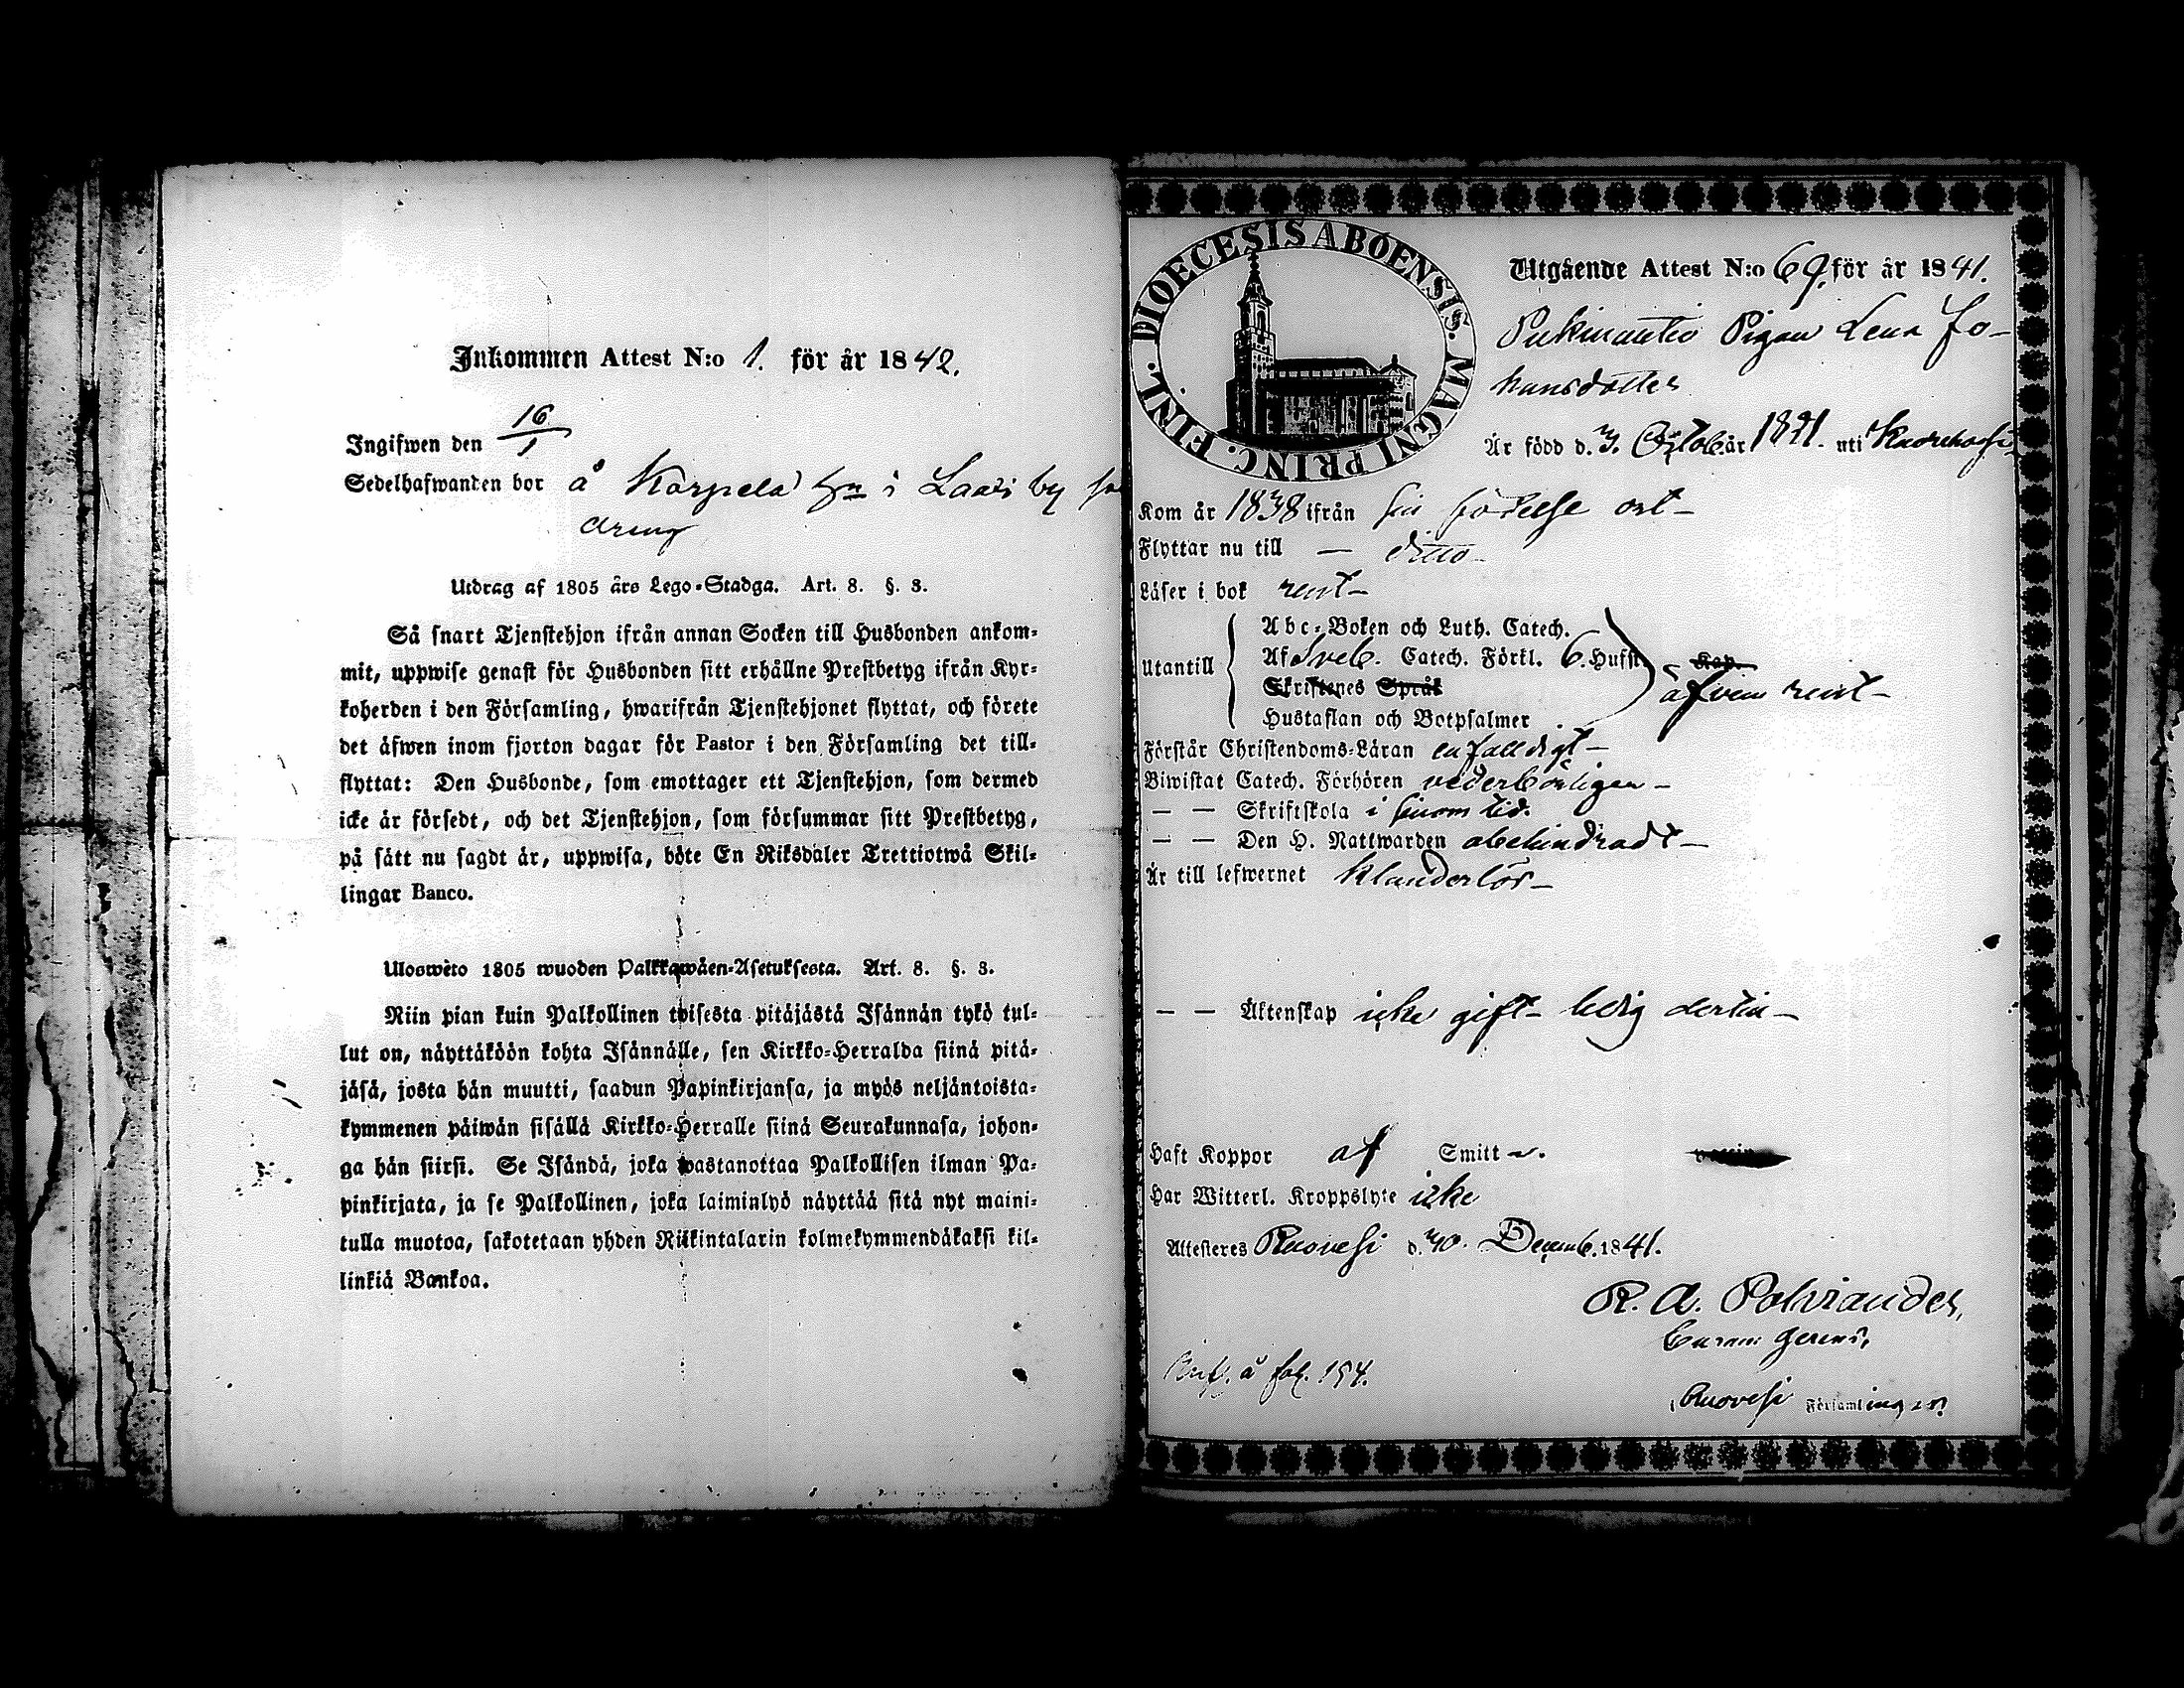 Inkommen Attest N:o 1. för år 1842.
Ingifwen den 16/1
Sedelhafwanden bor å Karpela hn i Laasi by
Utdrag af 1805 års Lego-Stadga. Art. 8. §. 3.
Så snart Tjenstehjon ifrån annan Socken till Husbonden ankom-
mit, uppwise genast för Husbonden sitt erhållne Prestbetyg ifrån Kyr-
koherden i den Församling, hwarifrån Tjenstehjonet flyttat, och förete
det äfwen inom fjorton dagar för Pastor i den Församling det till-
flyttat: Den Husbonde, som emottager ett Tjenstehjon, som dermed
icke är försedt, och det Tjenstehjon, som försummar sitt Prestbetyg,
på sätt nu sagdt är, uppwisa, böte En Riksdaler Trettiotwå Skil-
lingar Banco.
Uloswèto 1805 wuoden Palkkawäen-Asetuksesta. Art. 8. §. 3.
Niin pian kuin Palkollinen toisesta pitäjästä Isännän tykö tul-
lut on, näyttäköön kohta Isännälle, sen Kirkko-Herralda siinä pitä-
jäsä, josta hän muutti, saadun Papinkirjansa, ja myös neljäntoista-
kymmenen päiwän sisällä Kirkko-Herralle siinä Seurakunnasa, johon-
ga hän siirsi. Se Isändä, joka wastanottaa Palkollisen ilman Pa-
pinkirjata, ja se Palkollinen, joka laiminlyö näyttää sitä nyt maini-
tulla muotoa, sakotetaan yhden Riikintalarin kolmekymmendäkaksi kil-
linkiä Bankoa.
FINL. DIOECESIS ABOENSIS. MAGNI PRINC.
Utgående Attest N:o 69. för år 1841.
Pigan Lena Jo-
hansdotter
Är född d. 3. Octob. år 1821. uti
Kom år 1838 ifrån sin födelse ort –
Flyttar nu till – ditto –
Läser i bok rent –
Utantill
Abc-Boken och Luth. Catech.
Af Sveb. Catech. Förkl. 6. Hufst. Kap.
Skriftenes Språk
äfven rent –
Hustaflan och Botpsalmer
Förstår Christendoms-Läran enfalldigt –
Biwistat Catech. Förhören vederbörligen –
— — Skriftskola i sinom tid.
— — Den H. Nattwarden obehindradt –
Är till lefwernet klanderlös –
— — Äktenskap icke gift – ledig dertill –
Haft Koppor af Smitt
Har Witterl. Kroppslyte icke
Attesteres Ruovesi d. 30. Decemb. 1841.
R. A. Polviander,
Curam gerens,
Ruovesi Församlingen
Inf. å fol. 154.